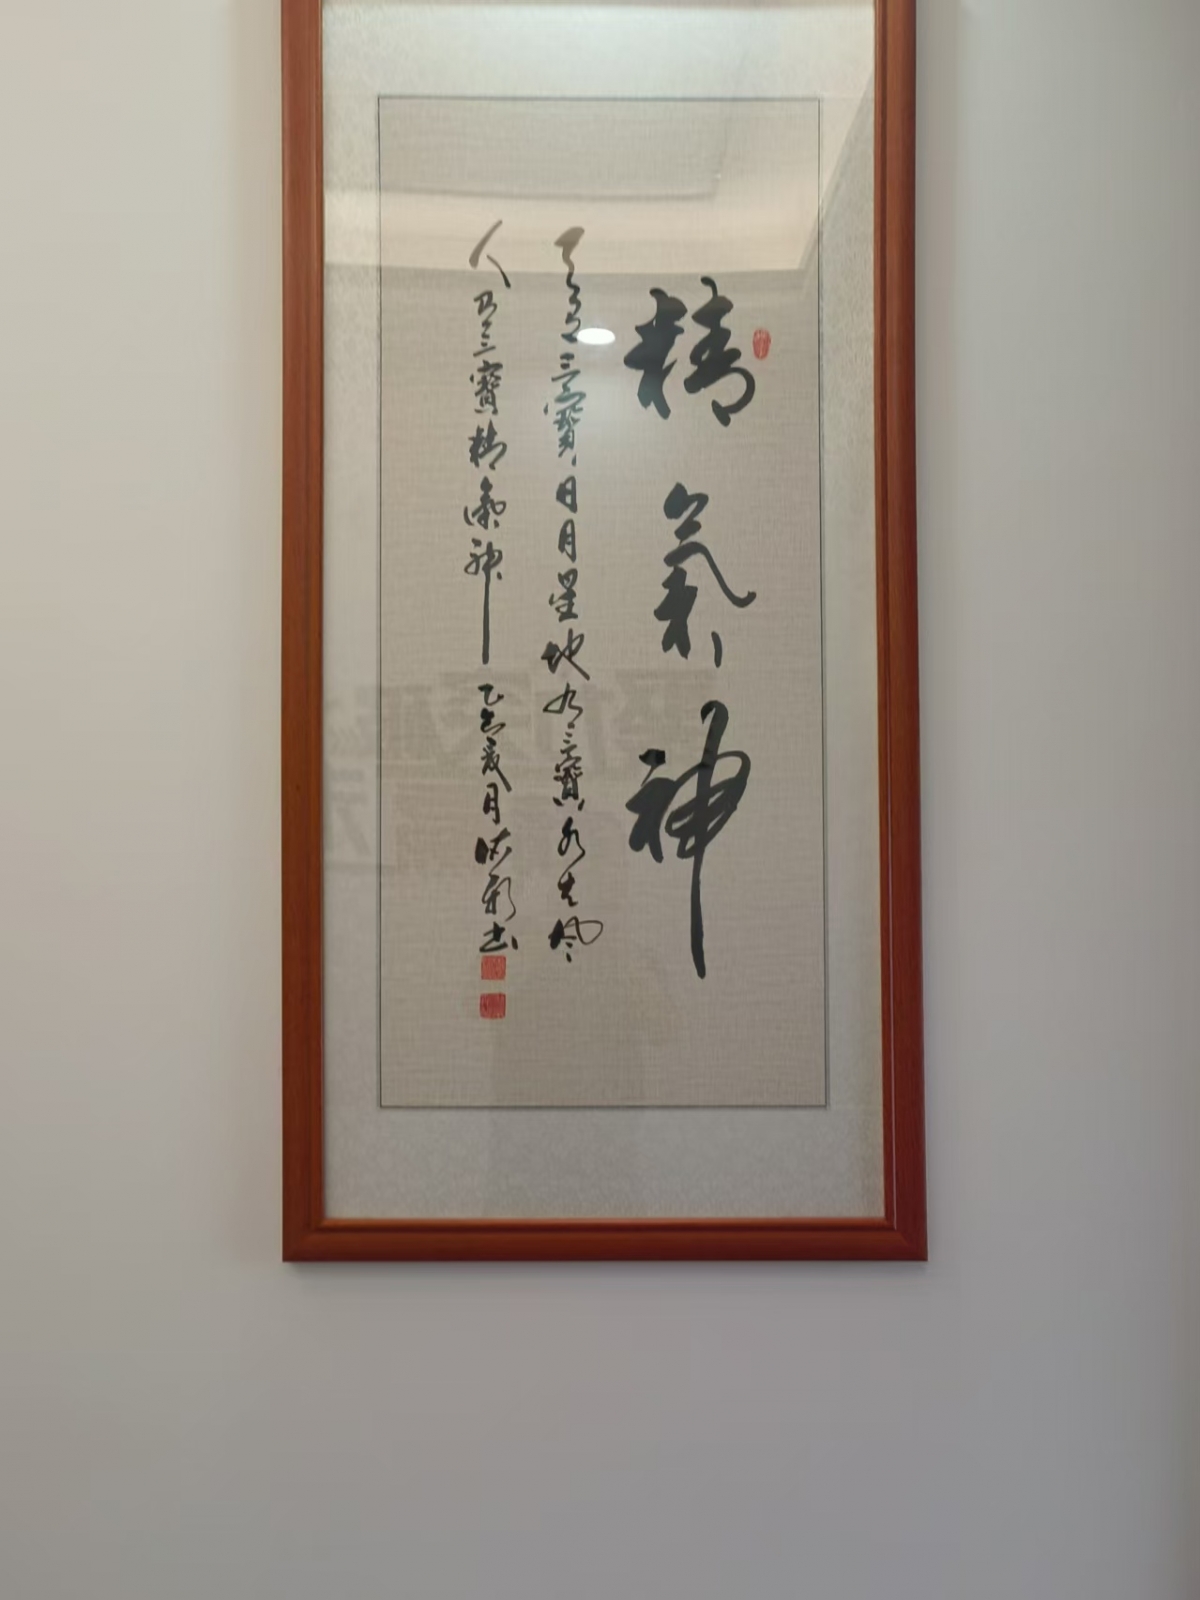 精氣神
天有三寶日月星地有三寶水火風
人有三寶精氣神 乙巳夏月